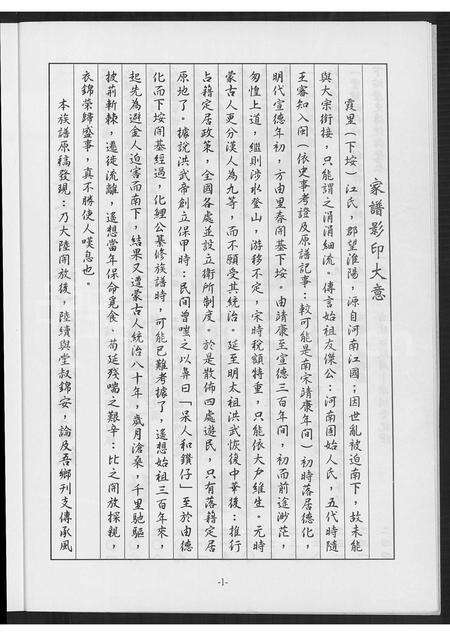 家譜影印大意
霞里(下垵)江氏,郡望淮陽,源自河南江國;因世亂被迫南下,故未能
與大宗銜接,只能謂之涓涓細流。傳言始祖友傑公:河南固始人氏,五代時隨
王審知入閩(依史事考證及原譜記事:較可能是南宋靖康年間)初時落居德化,
明代宣德年初,方由里春開基下垵。由靖康至宣德三百年間,初而前途渺茫,
匆惶上道,繼則涉水登山,游移不定,宋時稅額特重,只能依大戶維生。元時
蒙古人更分漢人為九等,而不願受其統治。延至明太祖洪武恢復中華後:推行
占籍定居政策,全國各處並設立衛所制度。於是散佈四處遊民,只有落籍定居
原地了。據說洪武帝創立保甲時:民間曾嗤之以鼻曰「呆人和鑽仔」至於由德
化而下垵開基經過,化鯉公纂修族譜時,可能已難考據了,遙想始祖三百年來,
起先為避金人迫害而南下,結果又遭蒙古人統治八十年,歲月滄桑,千里馳驅,
披荊斬棘,遷徙流離,遙想當年保命覓食、苟延殘喘之艱辛:比之開放探親,
衣錦榮歸盛事,真不勝使人嘆息也。
本族譜原稿發現:乃大陸開放後,陸續與堂叔錦安,論及吾鄉刊支傳承風
-1-